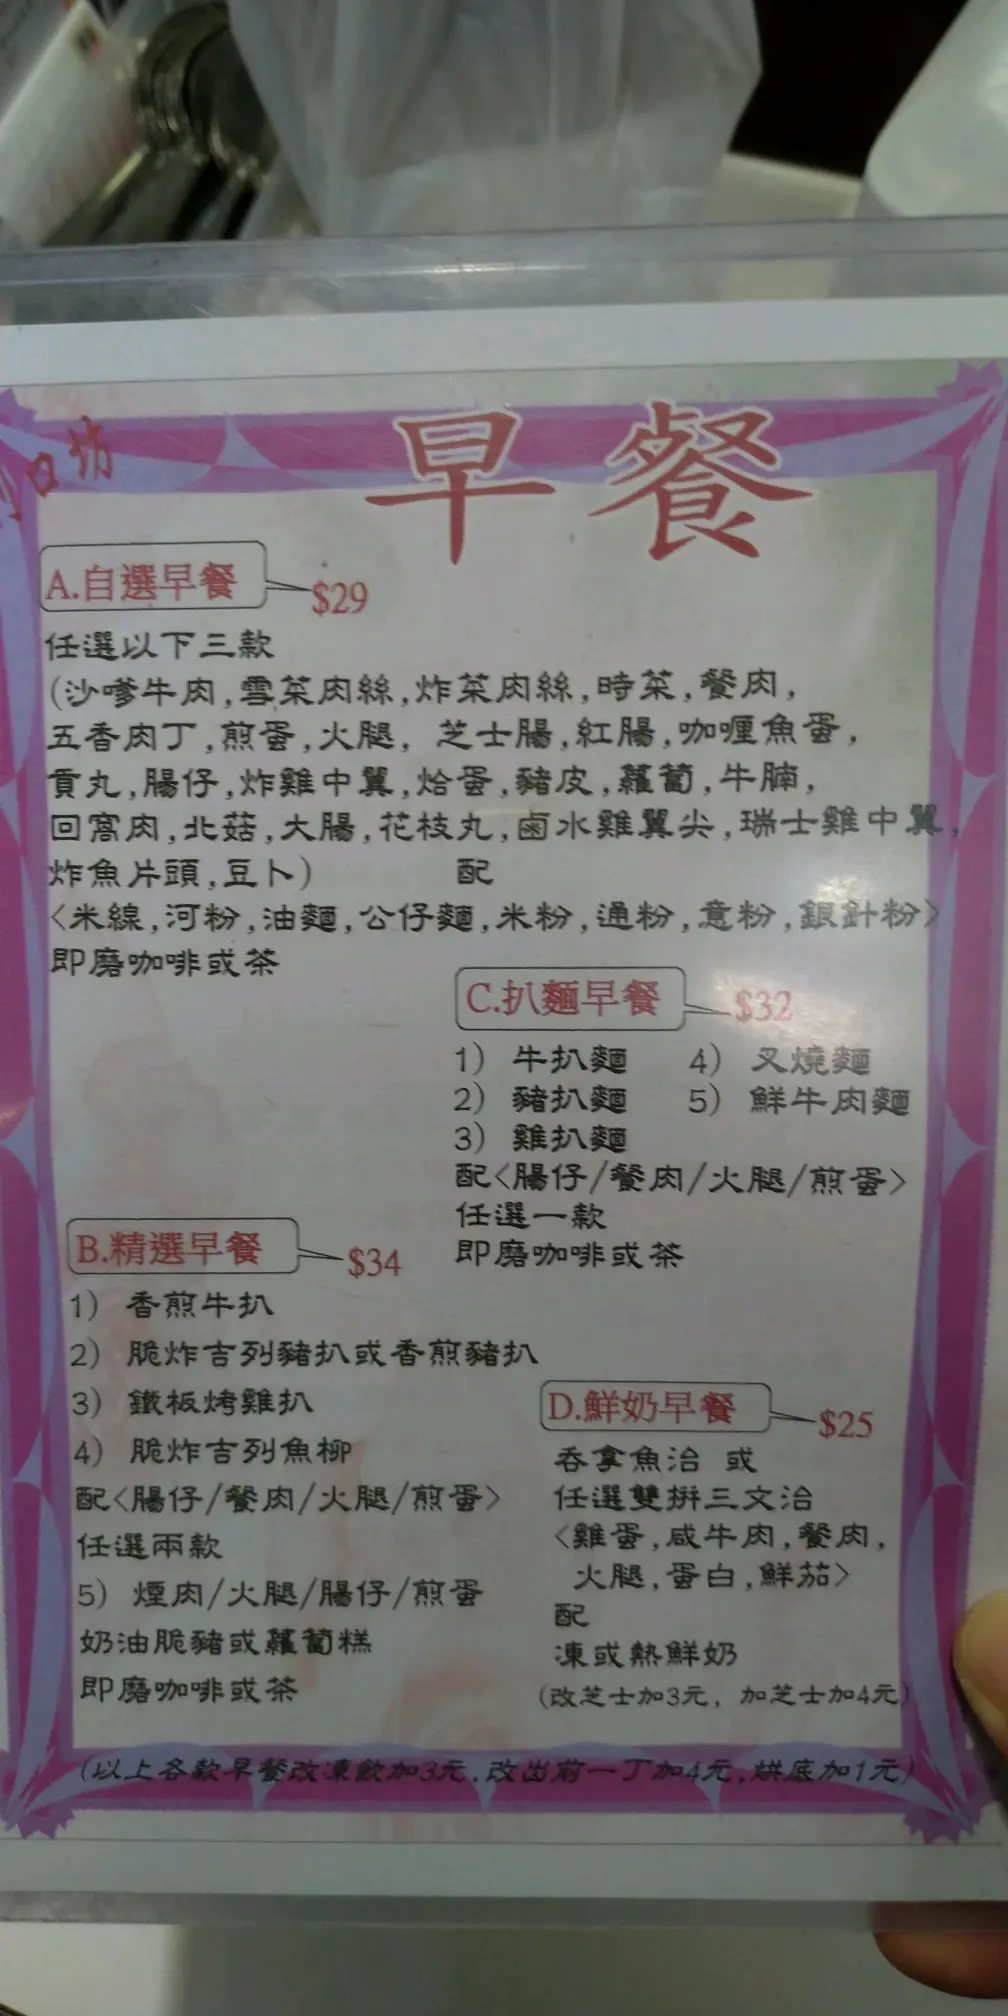 口坊
早餐
A.自選早餐 $29
任選以下三款
(沙嗲牛肉,雪菜肉絲,炸菜肉絲,時菜,餐肉,
五香肉丁,煎蛋,火腿, 芝士腸,紅腸,咖喱魚蛋,
貢丸,腸仔,炸雞中翼,烚蛋,豬皮,蘿蔔,牛腩,
回窩肉,北菇,大腸,花枝丸,鹵水雞翼尖,瑞士雞中翼,
炸魚片頭,豆卜) 配
<米線,河粉,油麵,公仔麵,米粉,通粉,意粉,銀針粉>
即磨咖啡或茶
C.扒麵早餐 $32
1) 牛扒麵 4) 叉燒麵
2) 豬扒麵 5) 鮮牛肉麵
3) 雞扒麵
配<腸仔/餐肉/火腿/煎蛋>
任選一款
即磨咖啡或茶
B.精選早餐 $34
1) 香煎牛扒
2) 脆炸吉列豬扒或香煎豬扒
3) 鐵板烤雞扒
4) 脆炸吉列魚柳
配<腸仔/餐肉/火腿/煎蛋>
任選兩款
5) 煙肉/火腿/腸仔/煎蛋
奶油脆豬或蘿蔔糕
即磨咖啡或茶
D.鮮奶早餐 $25
吞拿魚治 或
任選雙拼三文治
<雞蛋,咸牛肉,餐肉,
火腿,蛋白,鮮茄>
配
凍或熱鮮奶
(改芝士加3元, 加芝士加4元)
(以上各款早餐改凍飲加3元,改出前一丁加4元,烘底加1元)